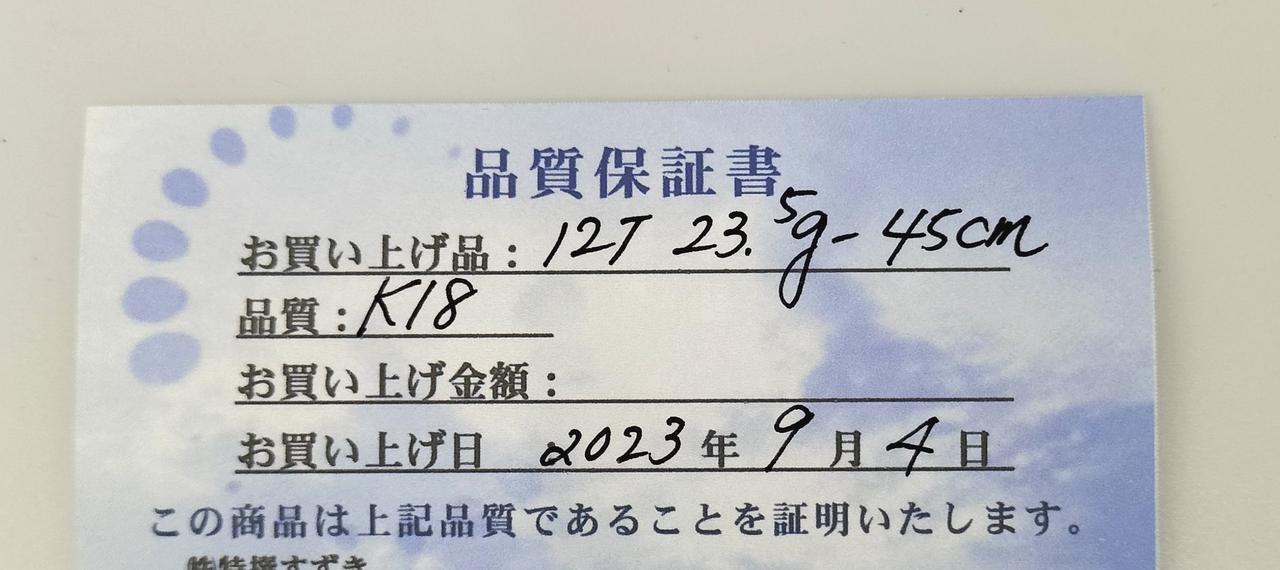 品質保証書
お買い上げ品：12T 23.5g- 45cm
品質：K18
お買い上げ金額：
お買い上げ日 2023年9月4日
この商品は上記品質であることを証明いたします。
㈱特撰すずき